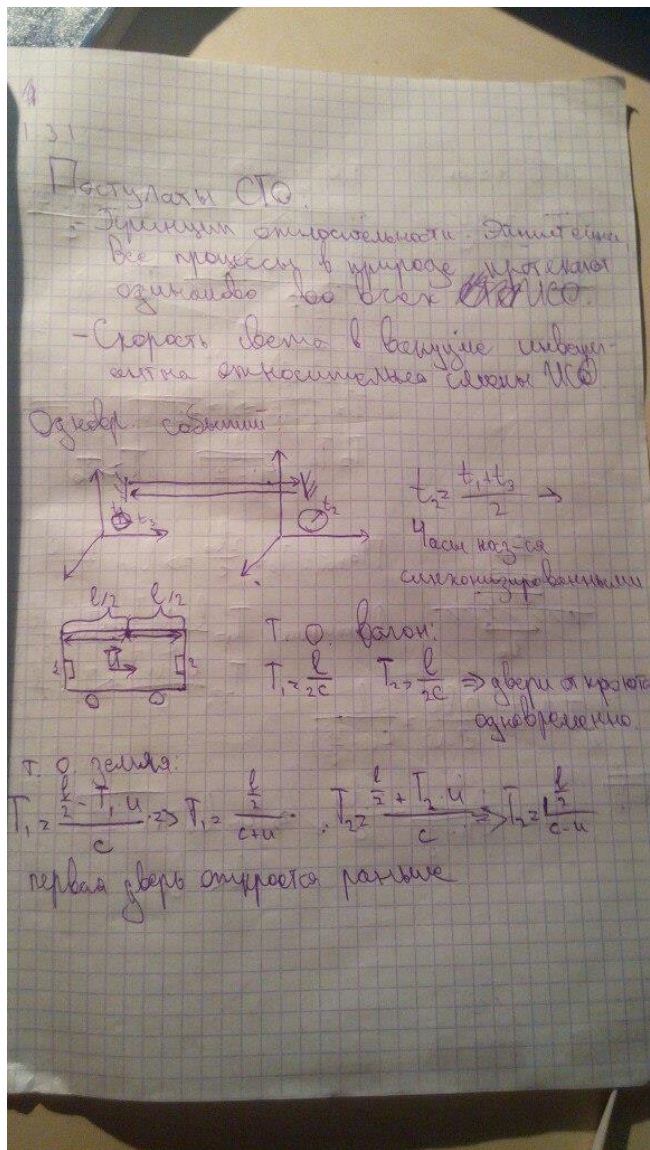 1 3 1
Постулаты СТО.
- Принцип относительности Эйнштейна
Все процессы в природе протекают
одинаково во всех ИСО.
- Скорость света в вакууме инвари-
антна относительно смены ИСО.
Одновр. событий
t₂ = (t₁+t₃)/2 →
t₃ t₂
Часы наз-ся
синхонизированными
l/2 l/2
Т. О. вагон:
1 u 2
T₁ = l/2c T₂ = l/2c ⇒ двери откроются
одновременно.
Т. О. земля:
T₁ = (l/2 - T₁ u)/c ⇒ T₁ = (l/2)/(c+u) . T₂ = (l/2 + T₂ u)/c ⇒ T₂ = (l/2)/(c-u)
первая дверь откроется раньше